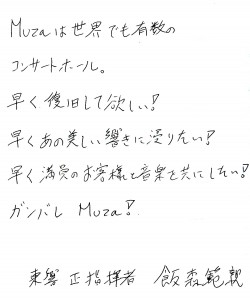 Muzaは世界でも有数の
コンサートホール。
早く復旧して欲しい!
早くあの美しい響きに浸りたい!
早く満員のお客様と音楽を共にしたい!
ガンバレ Muza!
東響 正指揮者 飯森範親